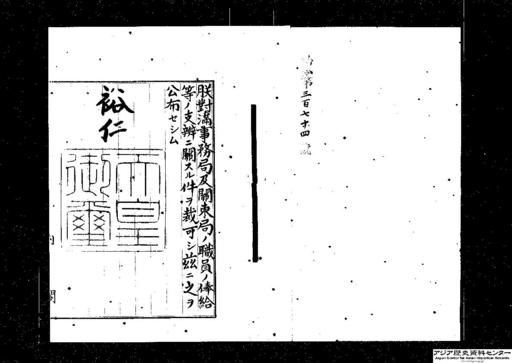 勅令第三百七十四號
朕對滿事務局及關東局ノ職員ノ俸給
等ノ支辨ニ關スル件ヲ裁可シ茲ニ之ヲ
公布セシム
裕仁
天皇
御璽
内閣
アジア歴史資料センター
Japan Center for Asian Historical Records